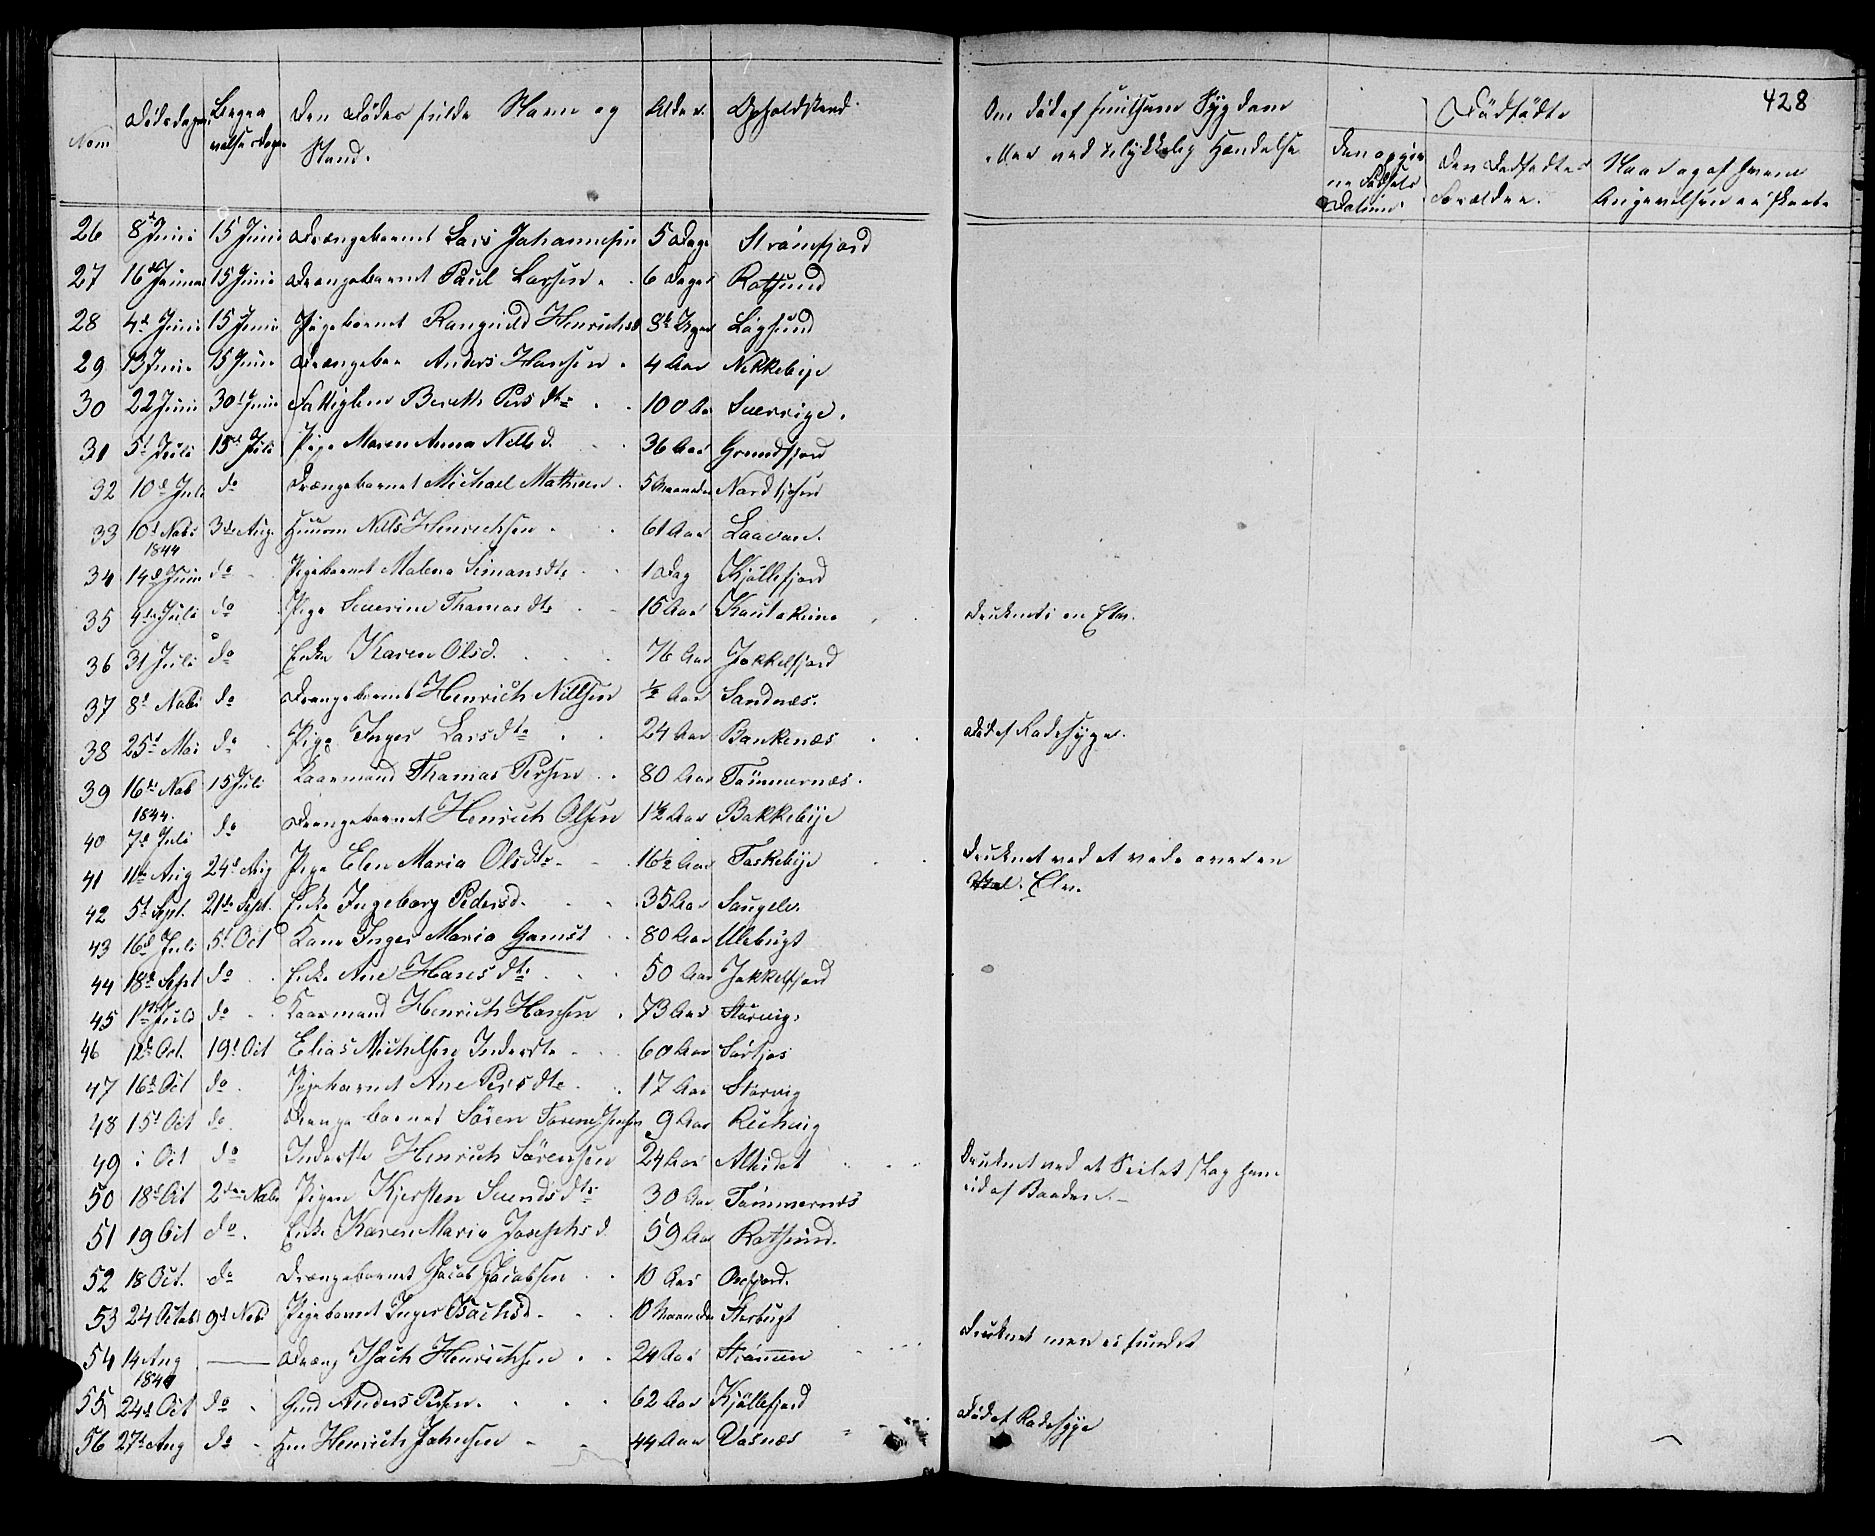 428
Nom Dødsdagen Begravelsesdagen Den Dødes fulde Navn og Stand. Alder. Opholdssted.
Om død af smitsom Sygdom eller ved ulykkelig Hændelse
Dødfødte
Den opgivne Fødsels Datum. Den Dødfødtes Forældre. Naar og af hvem Angivelsen er skeet.
26 8d Juni 15 Juni Drængebarnet Lars Johannesen 5 Dage Strømfjord
27 16d 15 Juni Drængebarnet Paul Larsen. 6 Dager Rotsund
28 4d Juni 15 Juni Pigebarnet Rangnild Henrichsd 8 Uger Løgsund
29 13 Juni 15 Juni Drængebar Anders Hansen. 4 Aar Nikkebye
30 22 Juni 30t Juni Fattiglem Bereth Persdtr 100 Aar Sverrige.
31 5t Juli 15d Juli Pige Maren Anna Nilsd. 36 Aar Grundfjord
32 10d Juli do Drængebarnet Michael Mathisen. 5 Maaneder Nordkjosen
33 10d Nobr 1844 3die Aug. Huusm Nils Henrichsen. 61 Aar Laavan.
34 14d Juni do Pigebarnet Malena Simonsdtr 1 Dag Kjøllefjord
35 9de Juli do Pige Severine Thomasdtr 15 Aar Kautokeino Druknet i en Elv.
36 31 Juli do Enke Karen Olsd. 76 Aar Jokkelfjord
37 8d Nobr do Drængebarnet Henrich Nillsen ½ Aar Sandnæs.
38 25d Mai do Pige Inger Larsdtr 24 Aar Bankenæs Død af Radesyge.
39 16de Nob 1844. 15 Juli Kaarmand Thomas Persen 80 Aar Tømmernæs.
40 7d Juli do Drængebarnet Henrich Olsen 1½ Aar Bakkebye
41 11te Aug 24d Aug Pige Elen Maria Olsdtr 16½ Aar Taskebye Druknet ved at vade over en
Elv.
42 5t Sept. 21de Sept. Enke Ingeborg Pedersd. 35 Aar Saugelv.
43 16d Juli 5t Oct Kone Inger Maria Gamst 80 Aar Ulebugt
44 18d Sept do Enke Ane Hansdtr 50 Aar Jokkelfjord
45 1ste Juli do Kaarmand Henrich Hansen. 73 Aar Storvig.
46 12d Oct. 19d Oct Elias Michelsen Inderste 60 Aar Sørkjos
47 16d Oct do Pigebarnet Ane Persdtr 17 Aar Storvig
48 15d Oct do Drængebarnet Søren 9 Aar
49 i Oct do Inderste Henrich Sørensen 24 Aar Altidet Druknet ved at Seilet slog ham
ud af Baaden.
50 18d Oct 2den Nobr Pigen Kjersten Svendsdtr 30 Aar Tømmernæs
51 19 Oct do. Enke Karen Maria Josephsd 59 Aar Rotsund.
52 18 Oct. do Drængebarnet Jacob Jacobsen 10 Aar Oxfjord.
53 24 Octob 9d Nob Pigebarnet Inger Isachsd. 10 Maaneder Storbugt
54 14 Aug 1844 — Dræng Isach Henrichsen 24 Aar Strømen Druknet men ei fundet
55 24d Oct do Gmd Anders Persen. 62 Aar Kjøllefjord
56 27d Aug do Hm Henrich Johnsen 44 Aar Vasnæs Død af Radesyge